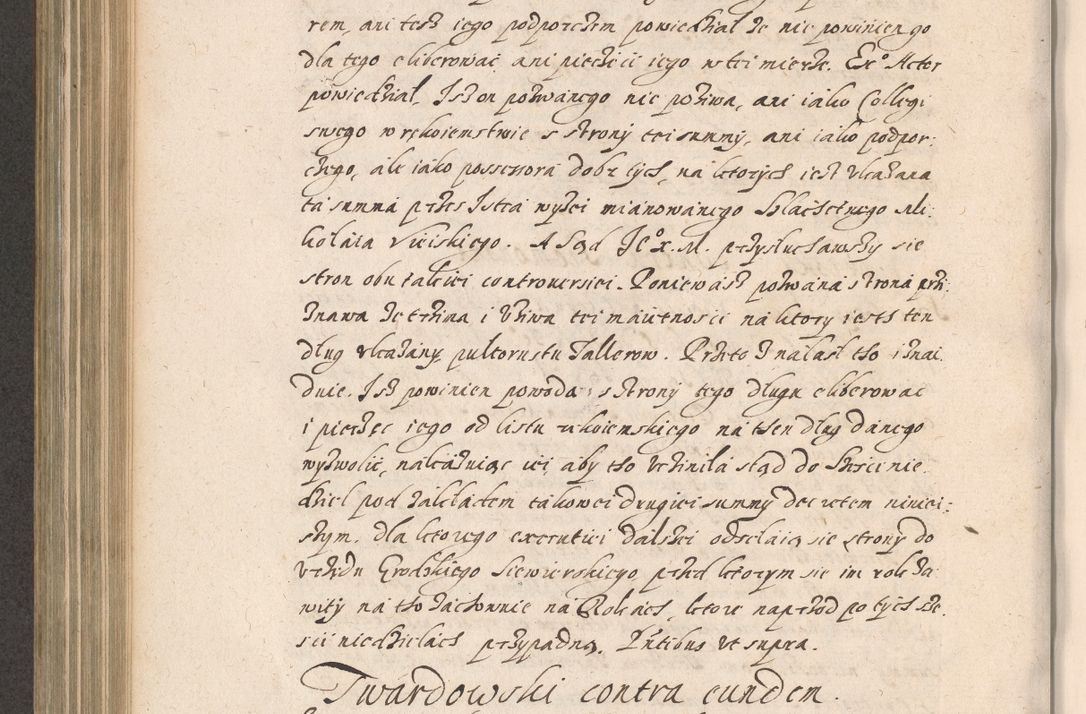 rem, ani tesz iego podporczem powiedział że nie powinien go
dla tego eliberować ani pieczęci iego w tei mierze. Ex° Actor
powiedział, Iż on pozwanego nie pożiwa, ani iako Collegi
swego w rękoiemstwie s strony tei summy, ani iako podpor:
czego, ale iako possessora dobr tych, na ktorych iest vkazana
ta summa przes Istca wyżei mianowanego Szlachetnego Mi:
kołaia Siciskiego. A Sąd Je° x. M. przysłuchawszy się
stron obu takiei controuersiei. Ponieważ pozwana strona prżi
znawa że trzima i vżiwa tei maiętności na ktory iests ten
dług vkazany pułtorustu Tallerow. Przeto znalasł tho i znai
duie. Iż powinien powoda s strony tego długu eliberować
i pieczęć iego od listu rękoiemskiego na then dług danego
wyzwolić, nakazuiąc iei, aby tho vczinila stąd do sześci nie
dziel pod zakładem takowei drugiei summy decretem niniei:
szym. dla ktorego executiei dalszei odsełaią się strony do
vrzędu Grodzkiego Siewierskiego, przed ktorym się im rok za
wity na tho zachownie na Rokach, ktore naprzod po tych sze:
sci niedzielach przypadną. Pntibus vt supra.
Twardowski contra eundem.